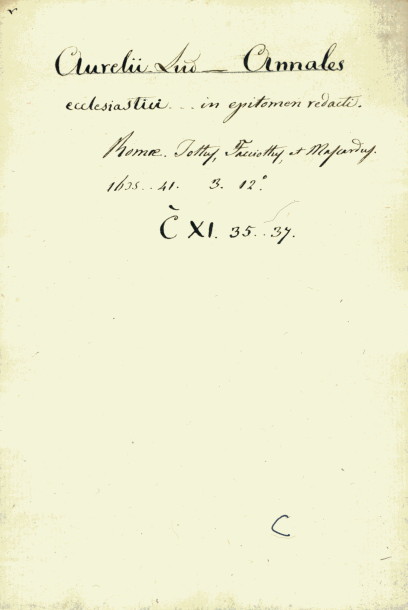 Aurelii Lud — Annales
ecclesiastici . . in epitomen redacti.
Romæ. Tottus, Facciottus, et Mascardus.
1635 . . 41. 3. 12°
Č XI. 35 . . 37.
C